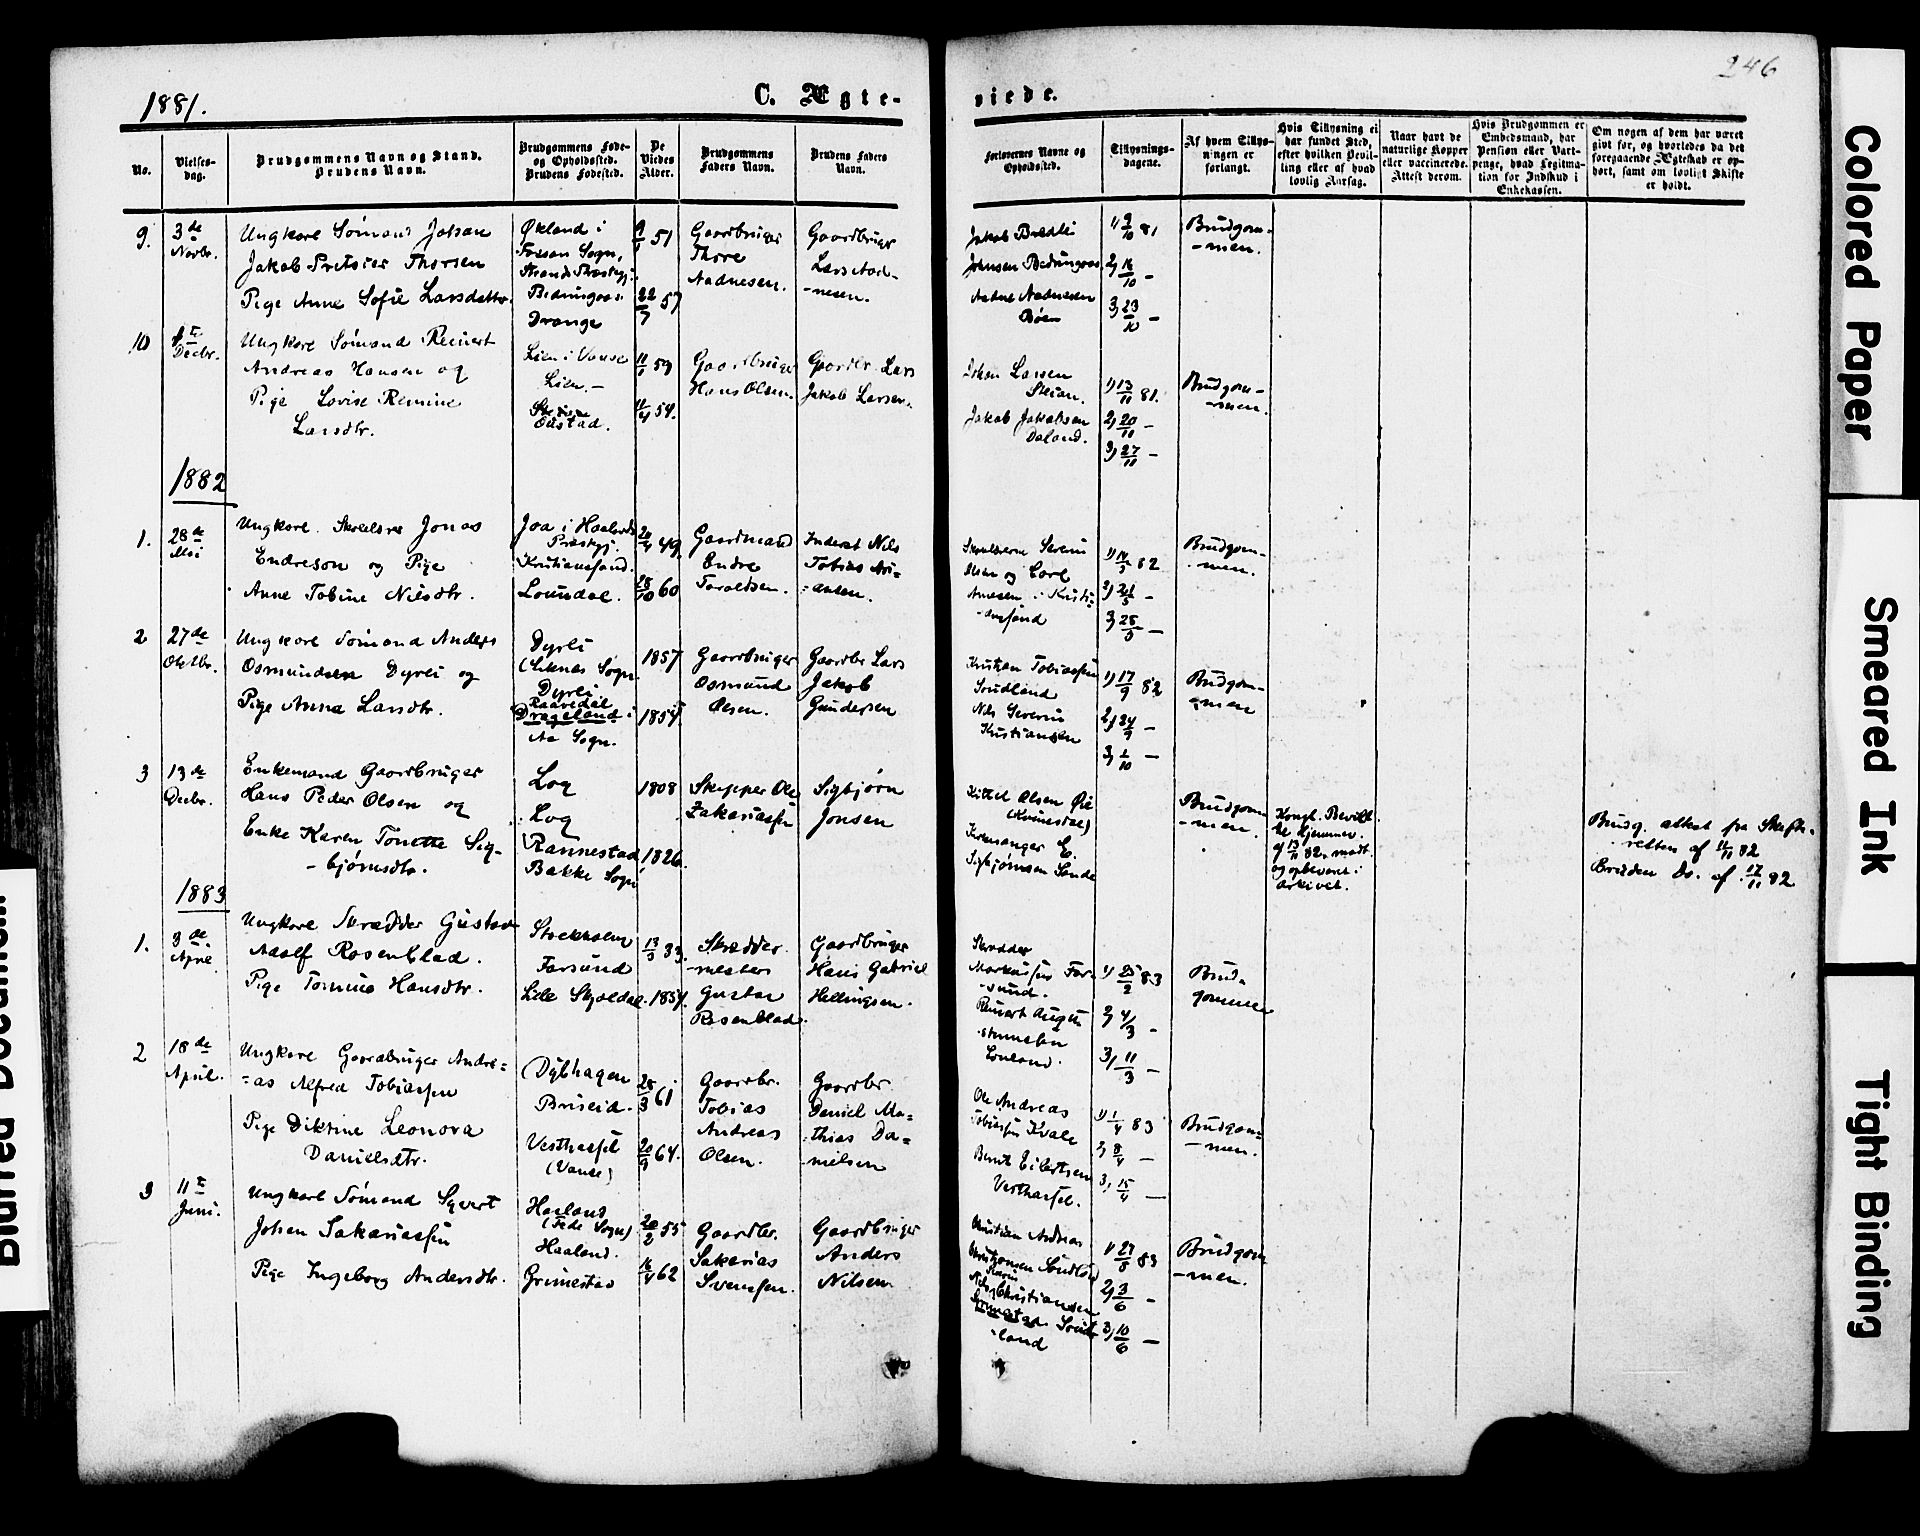 246
1881.
C. Ægte-
viede.
No.
Vielses-
dag.
Brudgommens Navn og Stand.
Brudens Navn.
Brudgommens Føde-
og Opholdssted.
Brudens Fødested.
De
Viedes
Alder.
Brudgommens
Faders Navn.
Brudens Faders
Navn.
Forlovernes Navne og
Opholdssted.
Tillysnings-
dagene.
Af hvem Tillys-
ningen er
forlangt.
Hvis Tillysning ei
har fundet Sted,
efter hvilken Bevil-
ling eller af hvad
lovlig Aarsag.
Naar havt de
naturlige Kopper
eller vaccinerede.
Attest derom.
Hvis Brudgommen er
Embedsmand, har
Pension eller Vart-
penge, hvad Legitima-
tion for Indskud i
Enkekassen.
Om nogen af dem har været
givt før, og hvorledes da det
foregaaende Ægteskab er op-
hørt, samt om lovligt Skifte
er holdt.
9.
3de
Novbr.
Ungkarl Sømand Johan
Jakob Thorsen
Pige Anne Sofie Larsdatter
Økland i
Sogn,
Drange
9/ 51
22/7 57
Gaardbruger
Thore
Aadnesen.
Gaardbruger
Lars Aad-
-nesen.
Jakob
Johnsen
Aadne Aadnesen
Bøen
1) 9/10 81
2) 16/10 -
3) 23/10 -
Brudgom-
-men.
10
1ste
Decbr.
Ungkarl Sømand Reinert
Andreas Hansen og
Pige Lovise Remine
Larsdtr.
Lien i Vanse
Lien. -
Oustad.
11/ 59
11/4 54.
Gaardbruger
Hans Olsen.
Gaardbr. Lars
Jakob Larsen.
Johan Larsen
Jakob Jakobsen
Daland.
1) 13/11 81.
2) 20/11 -
3) 27/11 -
Brudgom-
-men.
1882
1.
28de
Mai
Ungkarl. Jonas
Endreson og Pige
Anne Tobine Nilsdtr.
Joa i Haalands
Præstgj.
Kristianssand.
Loundal.
20/4 49.
28/10 60
Gaardmand
Endre
Toraldsen.
Inderst Nils
Tobias Ari-
-ansen.
Severin
Olsen og Carl
i Kristi-
-anssand
1) 14/5 82
2) 21/5 -
3) 28/5 -
Brudgom-
-men.
2
27de
Oktbr.
Ungkarl Sømand Anders
Osmundsen Dyrli og
Pige Anna Larsdtr.
Dyrli
(Liknes Sogn
Dyrli
Raavedal
Drageland i
Aa Sogn.
1857
1854
Gaardbruger
Osmund
Olsen.
Gaardbr Lars
Jakob
Gundersen
Kristian Tobiassen
Sindland
Nils Severin
Kristiansen
1) 17/9 82
2) 24/9 -
3) 1/10 -
Brudgom-
-men
3
13de
Decbr.
Enkemand Gaardbruger
Hans Peder Olsen og
Enke Karen Tonette Sig-
-bjørnsdtr.
Log
Log
Rannestad
Bakke Sogn
1808
1826
Skipper Ole
Zakariassen
Sigbjørn
Jonsen
Kittel Olsen Øie
(Kvinesdal)
Kirkesanger E.
Sigbjørnsen Sande
Brudgom
-men.
Kongl. Bevill.
te hjemmev.
af 13/11 82 modt.
og opbevaret i
arkivet.
Brudg. attest fra Skifte-
retten af 11/11 82
Bruden Do. af 17/11 82
1883
1.
3de
April
Ungkarl Skrædder Gustav
Adolf Rosenblad.
Pige Tomine Hansdtr.
Stockholm
Farsund
Lille Skjoldal.
13/3 33.
1854.
Skrædder
-mester
Gustav
Rosenblad.
Gaardbruger
Hans Gabriel
Hellingsen.
Skrædder
Markussen Far-
-sund.
Reinert Augu
1) 25/2 83
2) 4/3 -
3) 11/3 -
Brud-
gommen
2
18de
April.
Ungkarl Gaardbruger Andre-
-as Alfred Tobiassen
Pige Diktine Leonora
Danielsdtr.
Dybhagen
Briseid.
Vesthassel
(Vanse)
28/3 61
20/9 64.
Gaardbr.
Tobias
Andreas
Olsen.
Gaardbr
Daniel Ma-
-thias Da-
-nielsen
Ole Andreas
Tobiassen Kvale
Bernt Eilertsen
Vesthassel.
1) 1/4 83
2) 8/4 -
3) 15/4 -
Brudgom-
-men.
3
11te
Juni.
Ungkarl Sømand Syvert
Johan Sakariassen
Pige Ingeborg Andersdtr.
Haaland
(Fede Sogn)
Haaland.
Grimestad
20/2 55
16/4 62
Gaardbr.
Sakarias
Svensen.
Gaardbruger
Anders
Nilsen
Christian Andreas
Christiansen
Nils Christiansen
-land
1) 27/5 83
2) 3/6 -
3) 10/6 -
Brudgom
-men.
Colored Paper
Smeared Ink
Tight Binding
Blurred Document